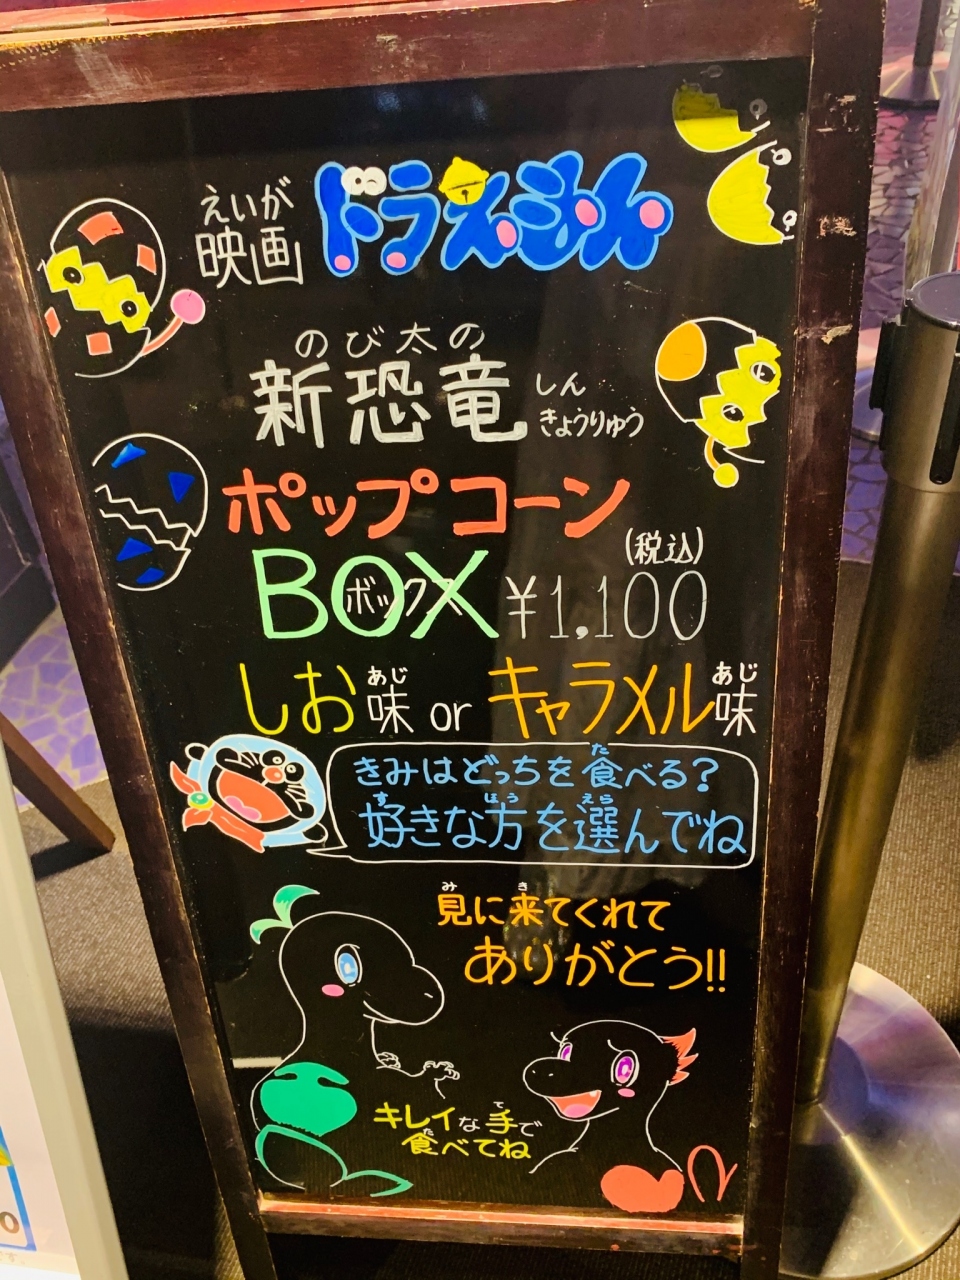 えいが
映画 ドラえもん
のび太の
新恐竜 しん
きょうりゅう
ポップコーン
BOX ボックス ¥1,100 (税込)
しお味 あじ or キャラメル味 あじ
た
きみはどっちを食べる?
す ほう えら
好きな方を選んでね
み き
見に来てくれて
ありがとう!!
て
キレイな手で
た
食べてね